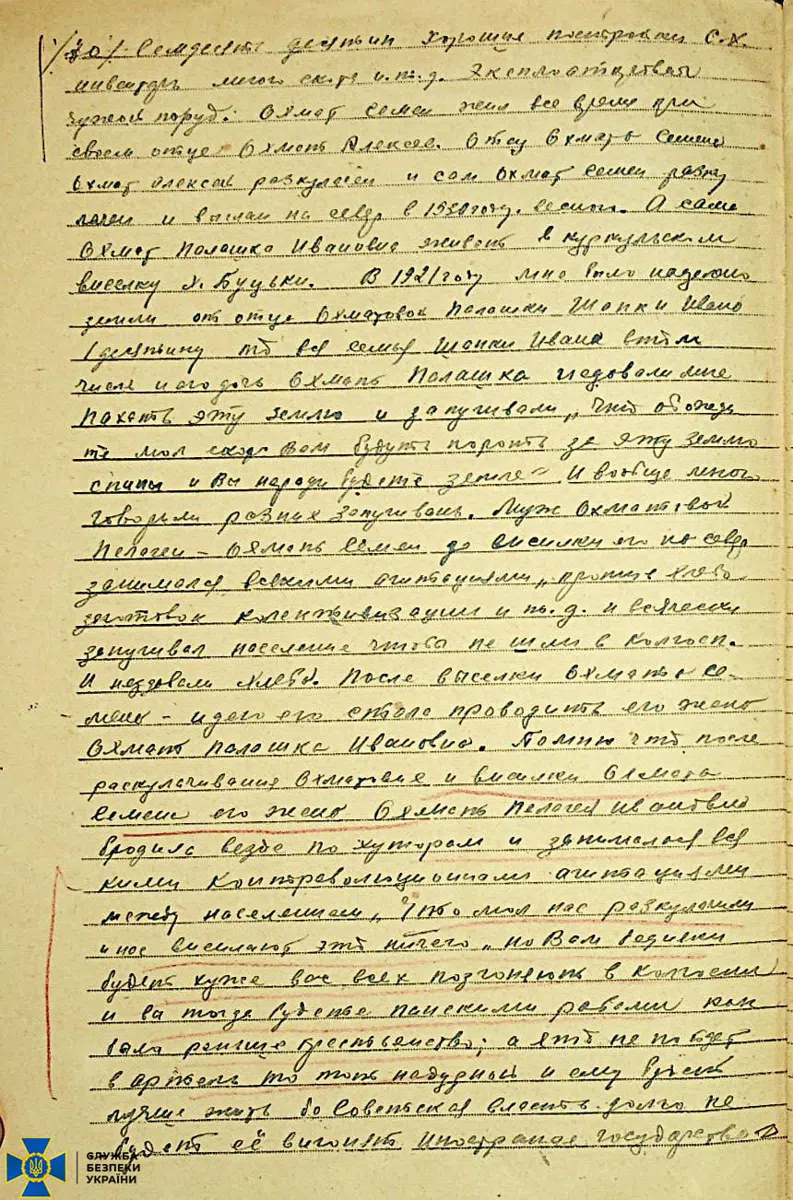 /70/ Семдесять десятин хорошие постройки С.Х.
инвентарь много скота и.т.д. Эксплоатировал
чужой труд. Охмат Семен жил все время при
своем отце Охмать Алексее. Отец Охмата Семена
Охмат Алексей разкулачен и сам Охмат Семен разку
лачен и выслан на север в 1930 году. весною. А сама
Охмат Палашка Ивановна живеть в куркульском
виселку х. Буцьки. В 1921 году мне было наделено
земли от отца Охматовой Палашки Шапки Ивана
1 десятину то вся семья Шапки Ивана в том
числе и его дочь Охмать Палашка недовали мне
пахать эту землю и запугивали „что обожди
те мол скоро Вам будуть пороть за эту землю
спины и Вы нарады будете земле" И вообще много
говорили разних запугивань. Муж Охматовой
Пелагеи – Охмать Семен до висилки его на север
занимался всякими агитациями „против хлебо
заготовок колективизации и т.д. и всячески
запугивал население чтобы не шли в колгосп.
И нездовали хлеба. После выселки Охмата Се-
мена – идею его стала проводить его жена
Охмат Палашка Ивановна. Помню что после
раскулачивания Охматовие и висилки Охмата
Семена его жена Охмать Пелагея Ивановна
бродила везде по хуторам и занималася вся
кими контреволюционими агитациями
между населением, „Что мол нас разкулачили
и нас висилают это ничего „но Вам бедняки
будет хуже вас всех позгоняють в колгоспи
и ви тогда будете панскими рабами как
было раньше крестьянство; а кто не пойдет
в артель то той и ему будет
лучше жить бо Советская власть долго не
будет её вигонят Иностраное государства
СЛУЖБА
БЕЗПЕКИ
УКРАЇНИ